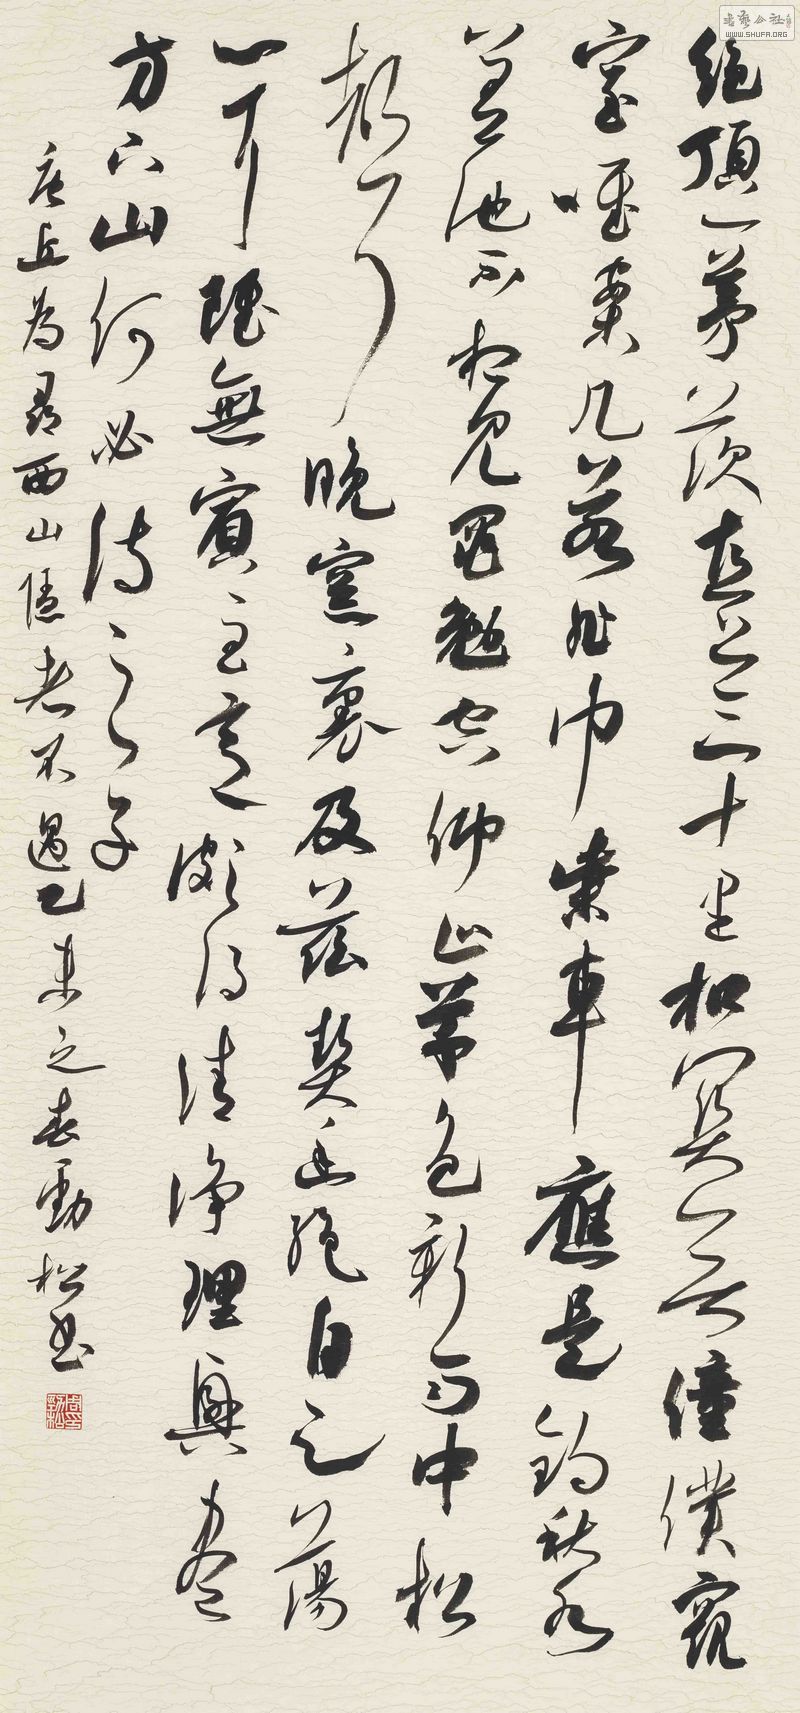 絕頂一茅茨直上三十里扣関无僮僕窺
室唯案几若非巾柴車應是釣秋水
差池不相見黽勉空仰止草色新雨中松
聲晚窗裏及茲契幽絕自足蕩
心耳雖無賓主意頗得清淨理興盡
方下山何必待之子
唐丘為尋西山隱者不遇乙未之春勁松書
書藝公社
WWW.SHUFA.ORG